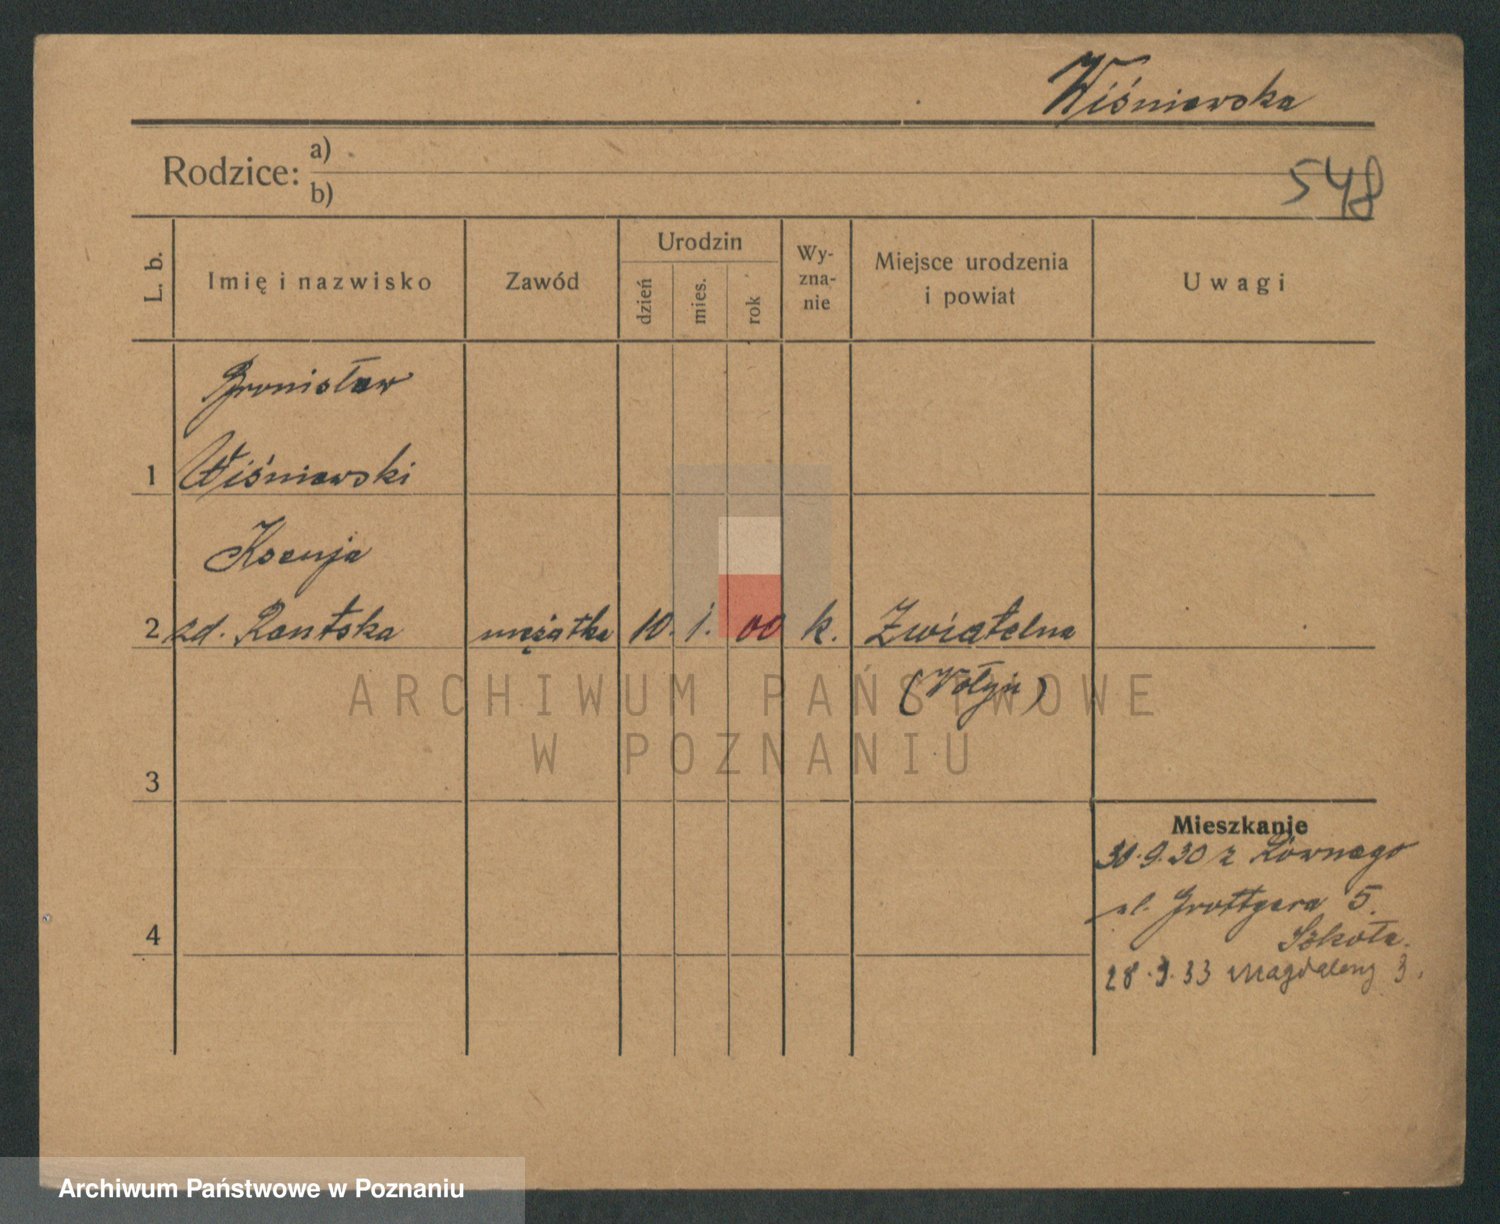 Wiśniewska
Rodzice: a)
b)
548
L. b.
Imię i nazwisko
Zawód
Urodzin
dzień
mies.
rok
Wy-
zna-
nie
Miejsce urodzenia
i powiat
Uwagi
Bronisław
1 Wiśniewski
Ksenja
2 zd. mężatka 10. 1. 00 k. Zwiatelna
(Wołyń)
ARCHIWUM PAŃSTWOWE
W POZNANIU
3
Mieszkanie
30.9.30 z Równego
ul. Grottgera 5.
4
Szkoła.
28.9.33 Magdaleny 3.
Archiwum Państwowe w Poznaniu